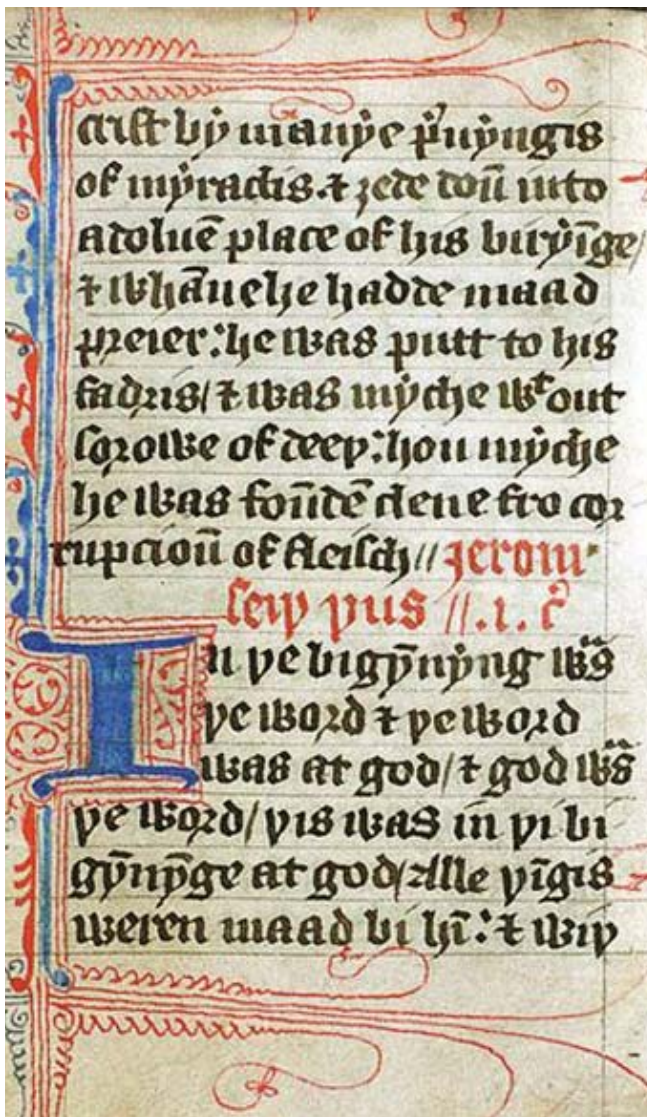 crist bẏ manẏe p̉uẏngis
of mẏraclis. ⁊ ȝede doū into
a doluē place of his birẏīge/
⁊ whāne he hadde maad
preier: he was putt to his
fadris/ ⁊ was mẏche wᵗout
sorowe of deeþ: hou mẏche
he was foūdē clene fro cor
rupcioū of fleisch// Jerom
seiþ þus //.1. c̉
In þe bigẏnẏng wᵃs
þe word ⁊ þe word
was at god/ ⁊ god wᵃs
þe word/ þis was in þi bi
gẏnẏge at god/ Alle þīgis
weren maad bi hī: ⁊ wiþ